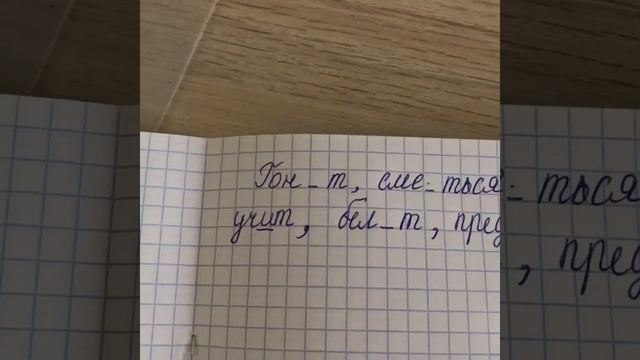 Гон_т, сме_ться
учит, бел_т, пред